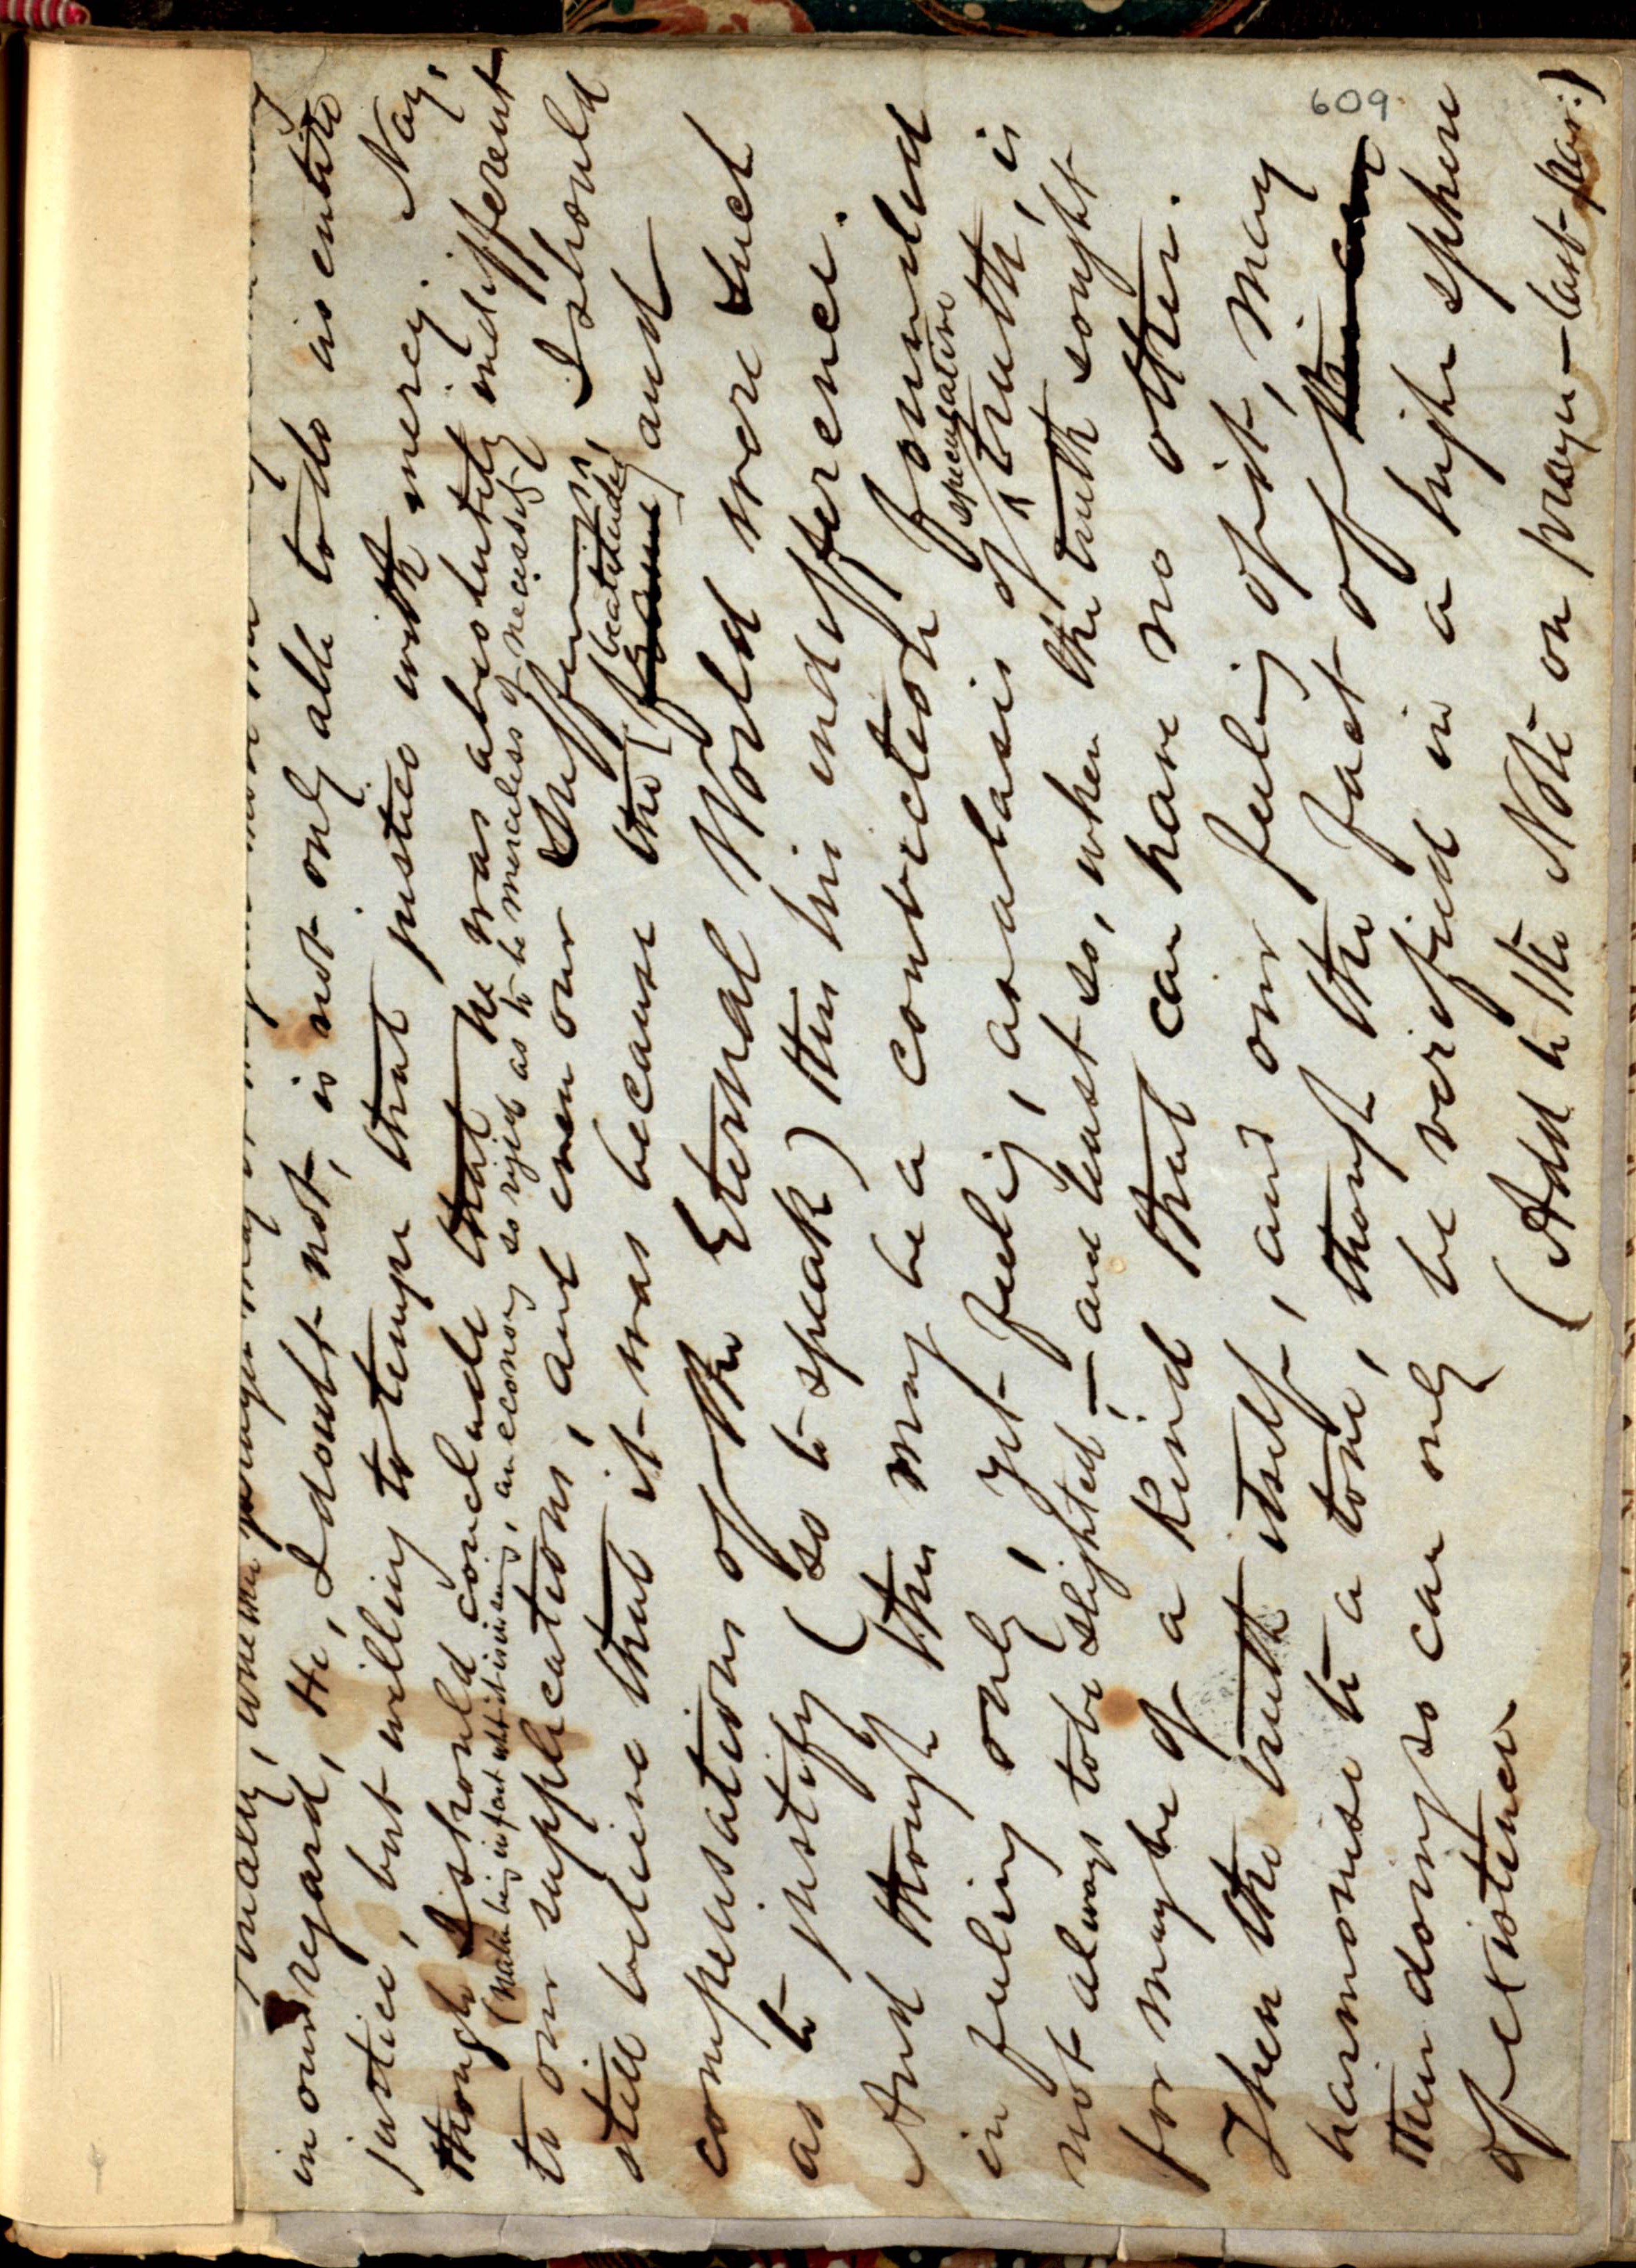 finally, whether
in our regard, He, I doubt not, is not only able to do us entire
justice, but willing to temper that justice with mercy. Nay,
though I should conclude that he was absolutely indifferent
(nature being in fact what it is in us, an economy so rigid as to be merciless of necessity)
to our supplications, and even our sufferings, I should
still believe that it was because the [fame beatitudes] and
compensations of the Eternal World were such
as to justify (so to speak) this his indifference.
And though this may be a conviction founded
in feeling only, yet feeling, as a basis of speculative truth, is
not always to be slighted, — and least so, when the truth sought
for may be of a kind that can have no other.
Then the truth itself, and our feeling of it, may
harmonise to a tone, though the fact of
their doing so can only be verified in a higher sphere
of existence
(Add to the Note on prayer — last par:)
609